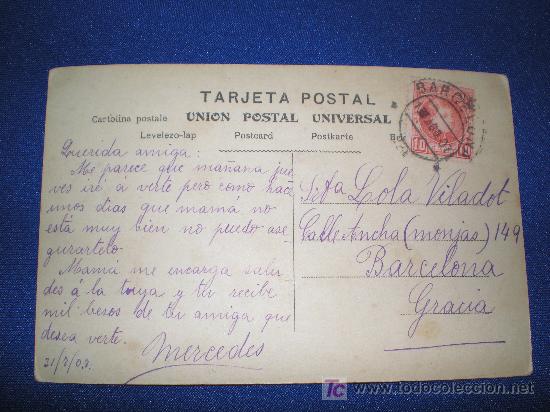 TARJETA POSTAL
UNION POSTAL UNIVERSAL
Cartolina postale
Levelezo-lap Postcard Postkarte
BARCELONA
10
Querida amiga:
Me parece que mañana jue
ves iré a verte pero como hac
unos dias que mama no
está muy bien no puedo ase
gurartelo.
Mamá me encarga salu
des á la tuya y tu recibe
mil besos de tu amiga que
desea verte.
Mercedes
Srta Lola Viladot
Calle Ancha (monjas) 149
Barcelona
Gracia
todocoleccion
www.todocoleccion.net